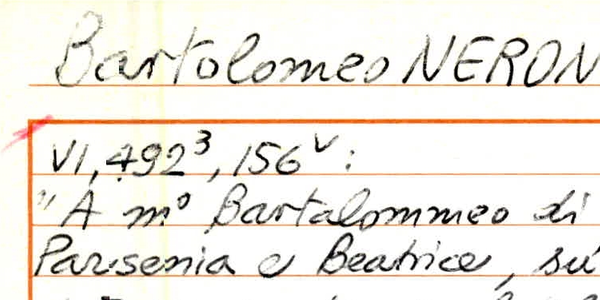 Bartolomeo NERON
VI, 492³, 156ᵛ:
"A m° Bartalommeo di
Parsenia e Beatrice, su